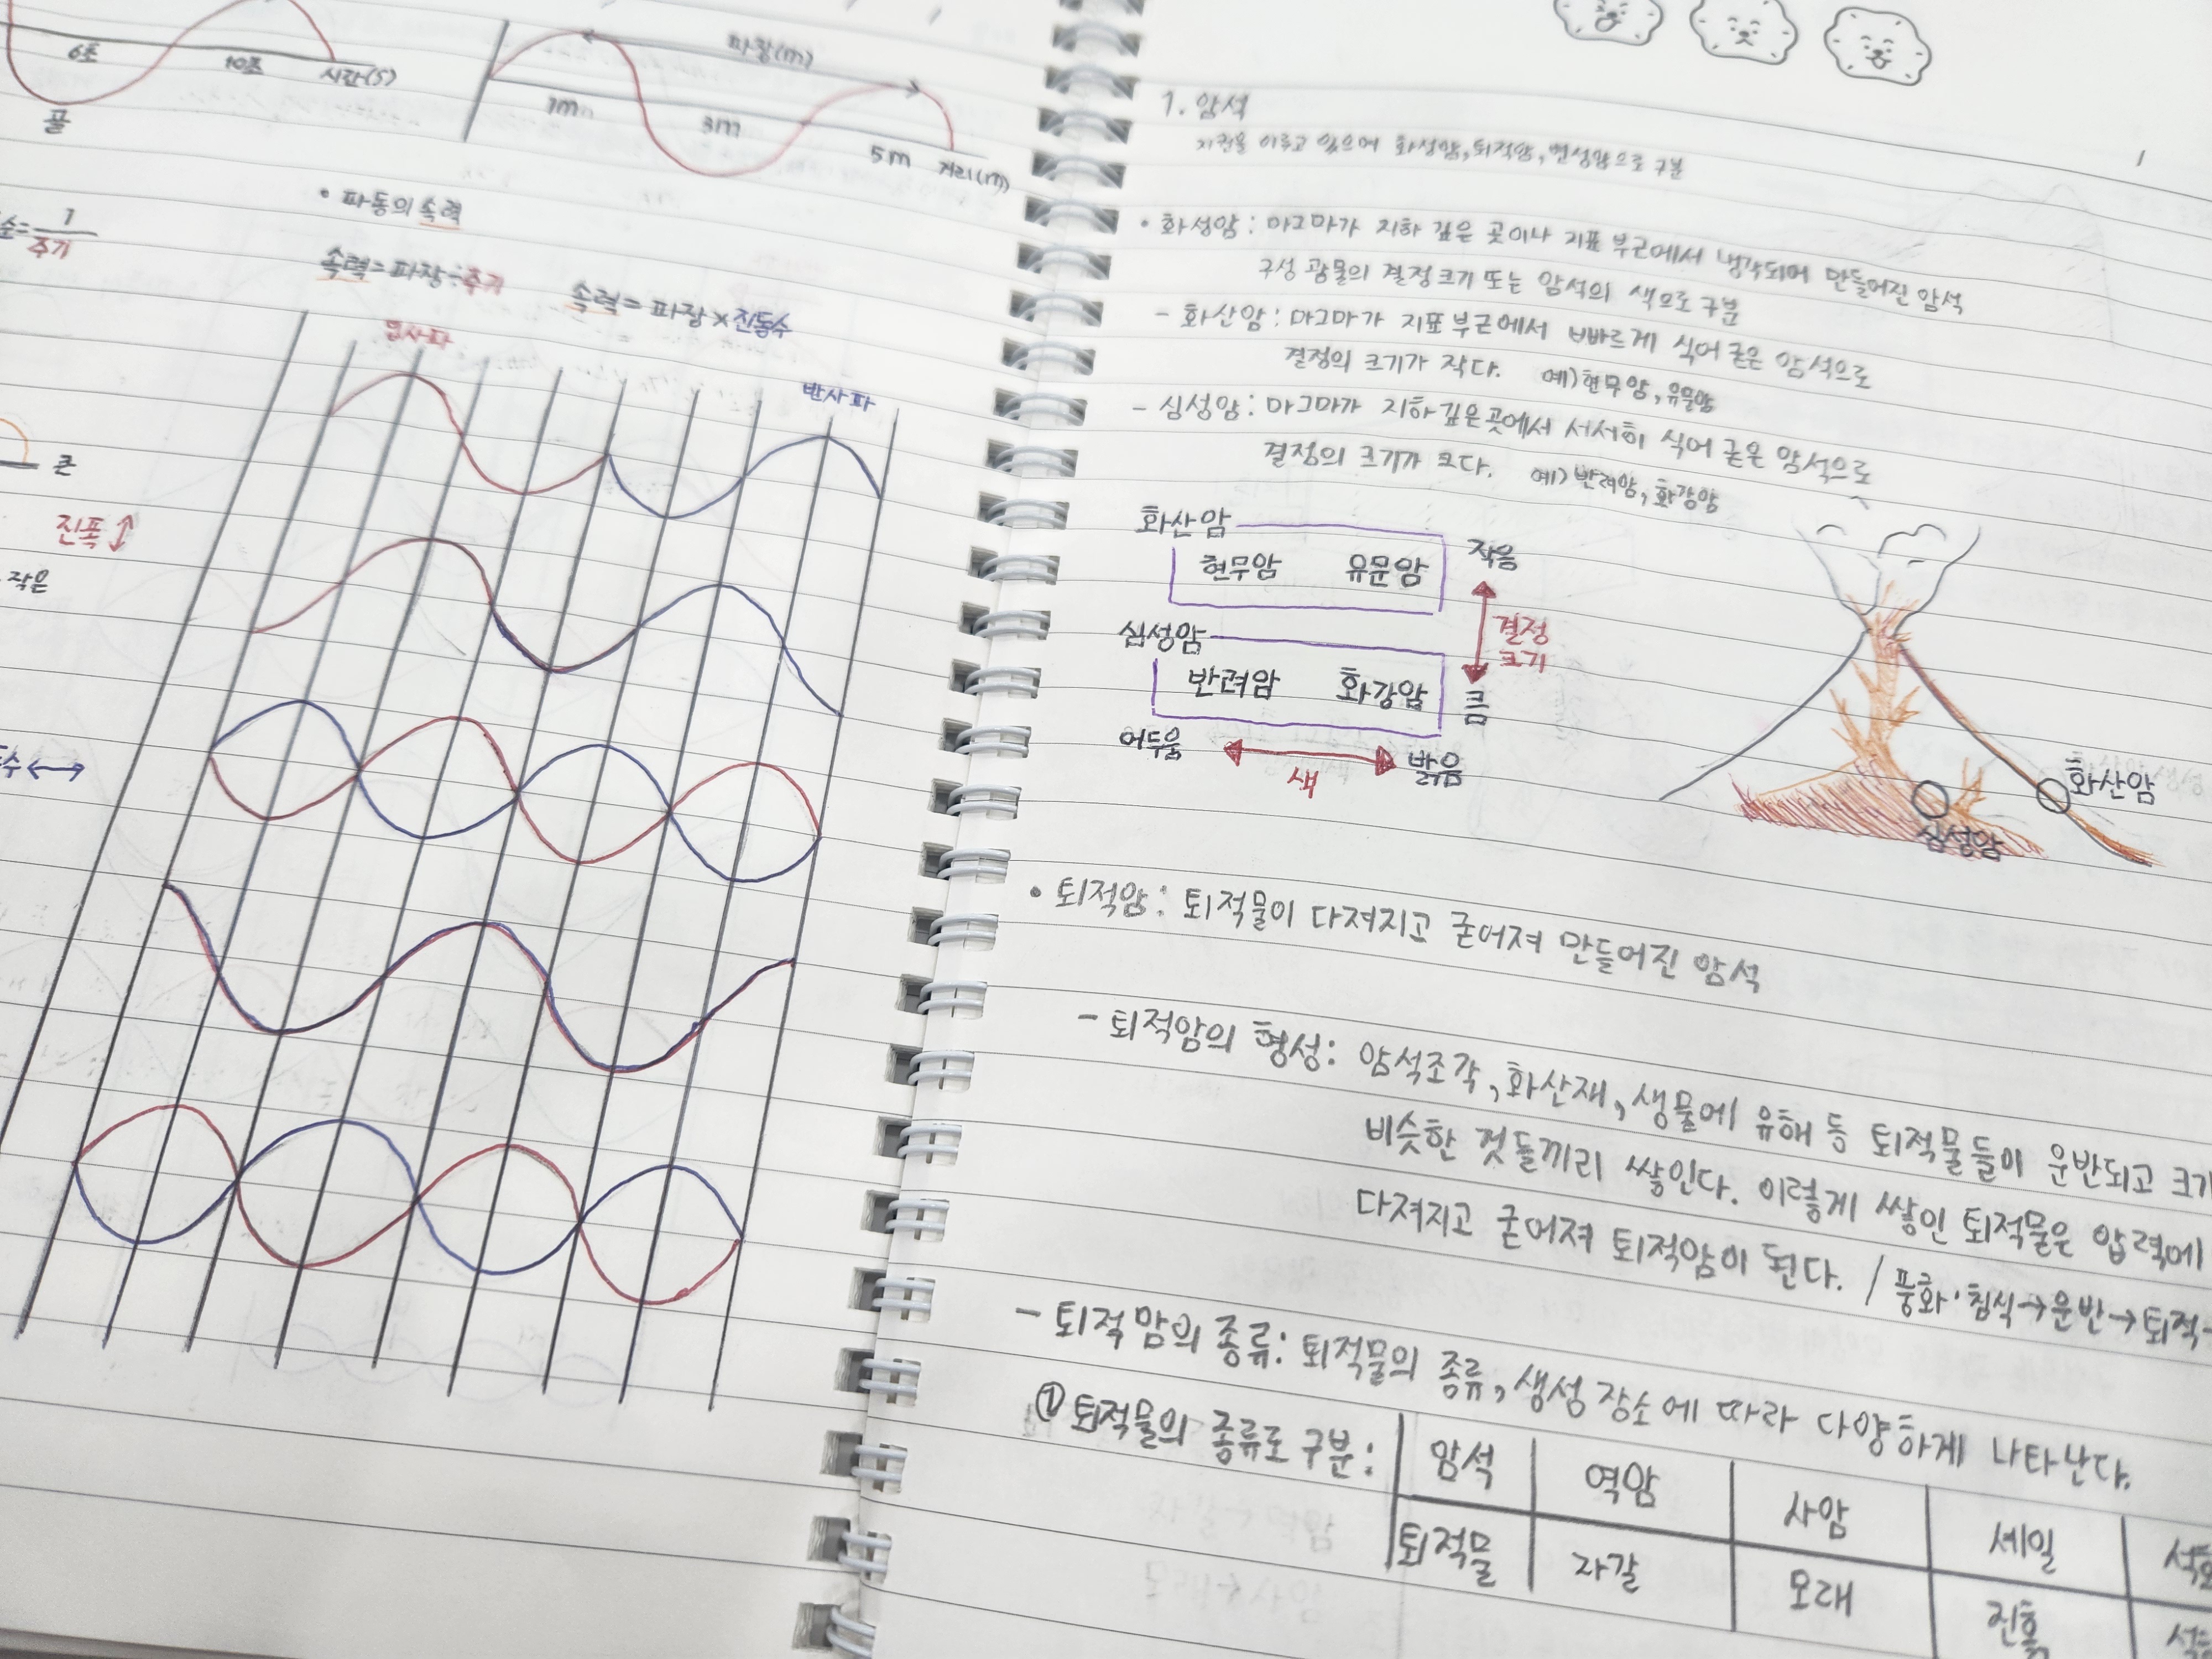 6초
10초
시간(s)
골
파장(m)
1m
3m
5m
거리(m)
• 파동의 속력
수=1/주기
속력=파장÷주기
속력=파장×진동수
입사파
반사파
큰
진폭
작은
수
1. 암석
지권을 이루고 있으며 화성암, 퇴적암, 변성암으로 구분
• 화성암: 마그마가 지하 깊은 곳이나 지표 부근에서 냉각되며 만들어진 암석
구성 광물의 결정크기 또는 암석의 색으로 구분
- 화산암: 마그마가 지표부근에서 빠르게 식어 굳은 암석으로
결정의 크기가 작다. 예)현무암, 유문암
- 심성암: 마그마가 지하깊은곳에서 서서히 식어 굳은 암석으로
결정의 크기가 크다. 예)반려암, 화강암
화산암
현무암 유문암
작음
결정
크기
심성암
반려암 화강암
큼
어두움
색
밝음
화산암
심성암
• 퇴적암: 퇴적물이 다져지고 굳어져 만들어진 암석
- 퇴적암의 형성: 암석조각, 화산재, 생물에 유해 등 퇴적물들이 운반되고 크기
비슷한 것들끼리 쌓인다. 이렇게 쌓인 퇴적물은 압력에
다져지고 굳어져 퇴적암이 된다. / 풍화·침식→운반→퇴적→
- 퇴적맘의 종류: 퇴적물의 종류, 생성 장소에 따라 다양하게 나타난다.
① 퇴적물의 종류로 구분:
암석 역암 사암 셰일
퇴적물 자갈 모래 진흙